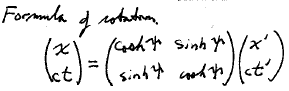 Formula of rotation.
(x ct) = (cosh ψ sinh ψ sinh ψ cosh ψ) (x′ ct′)